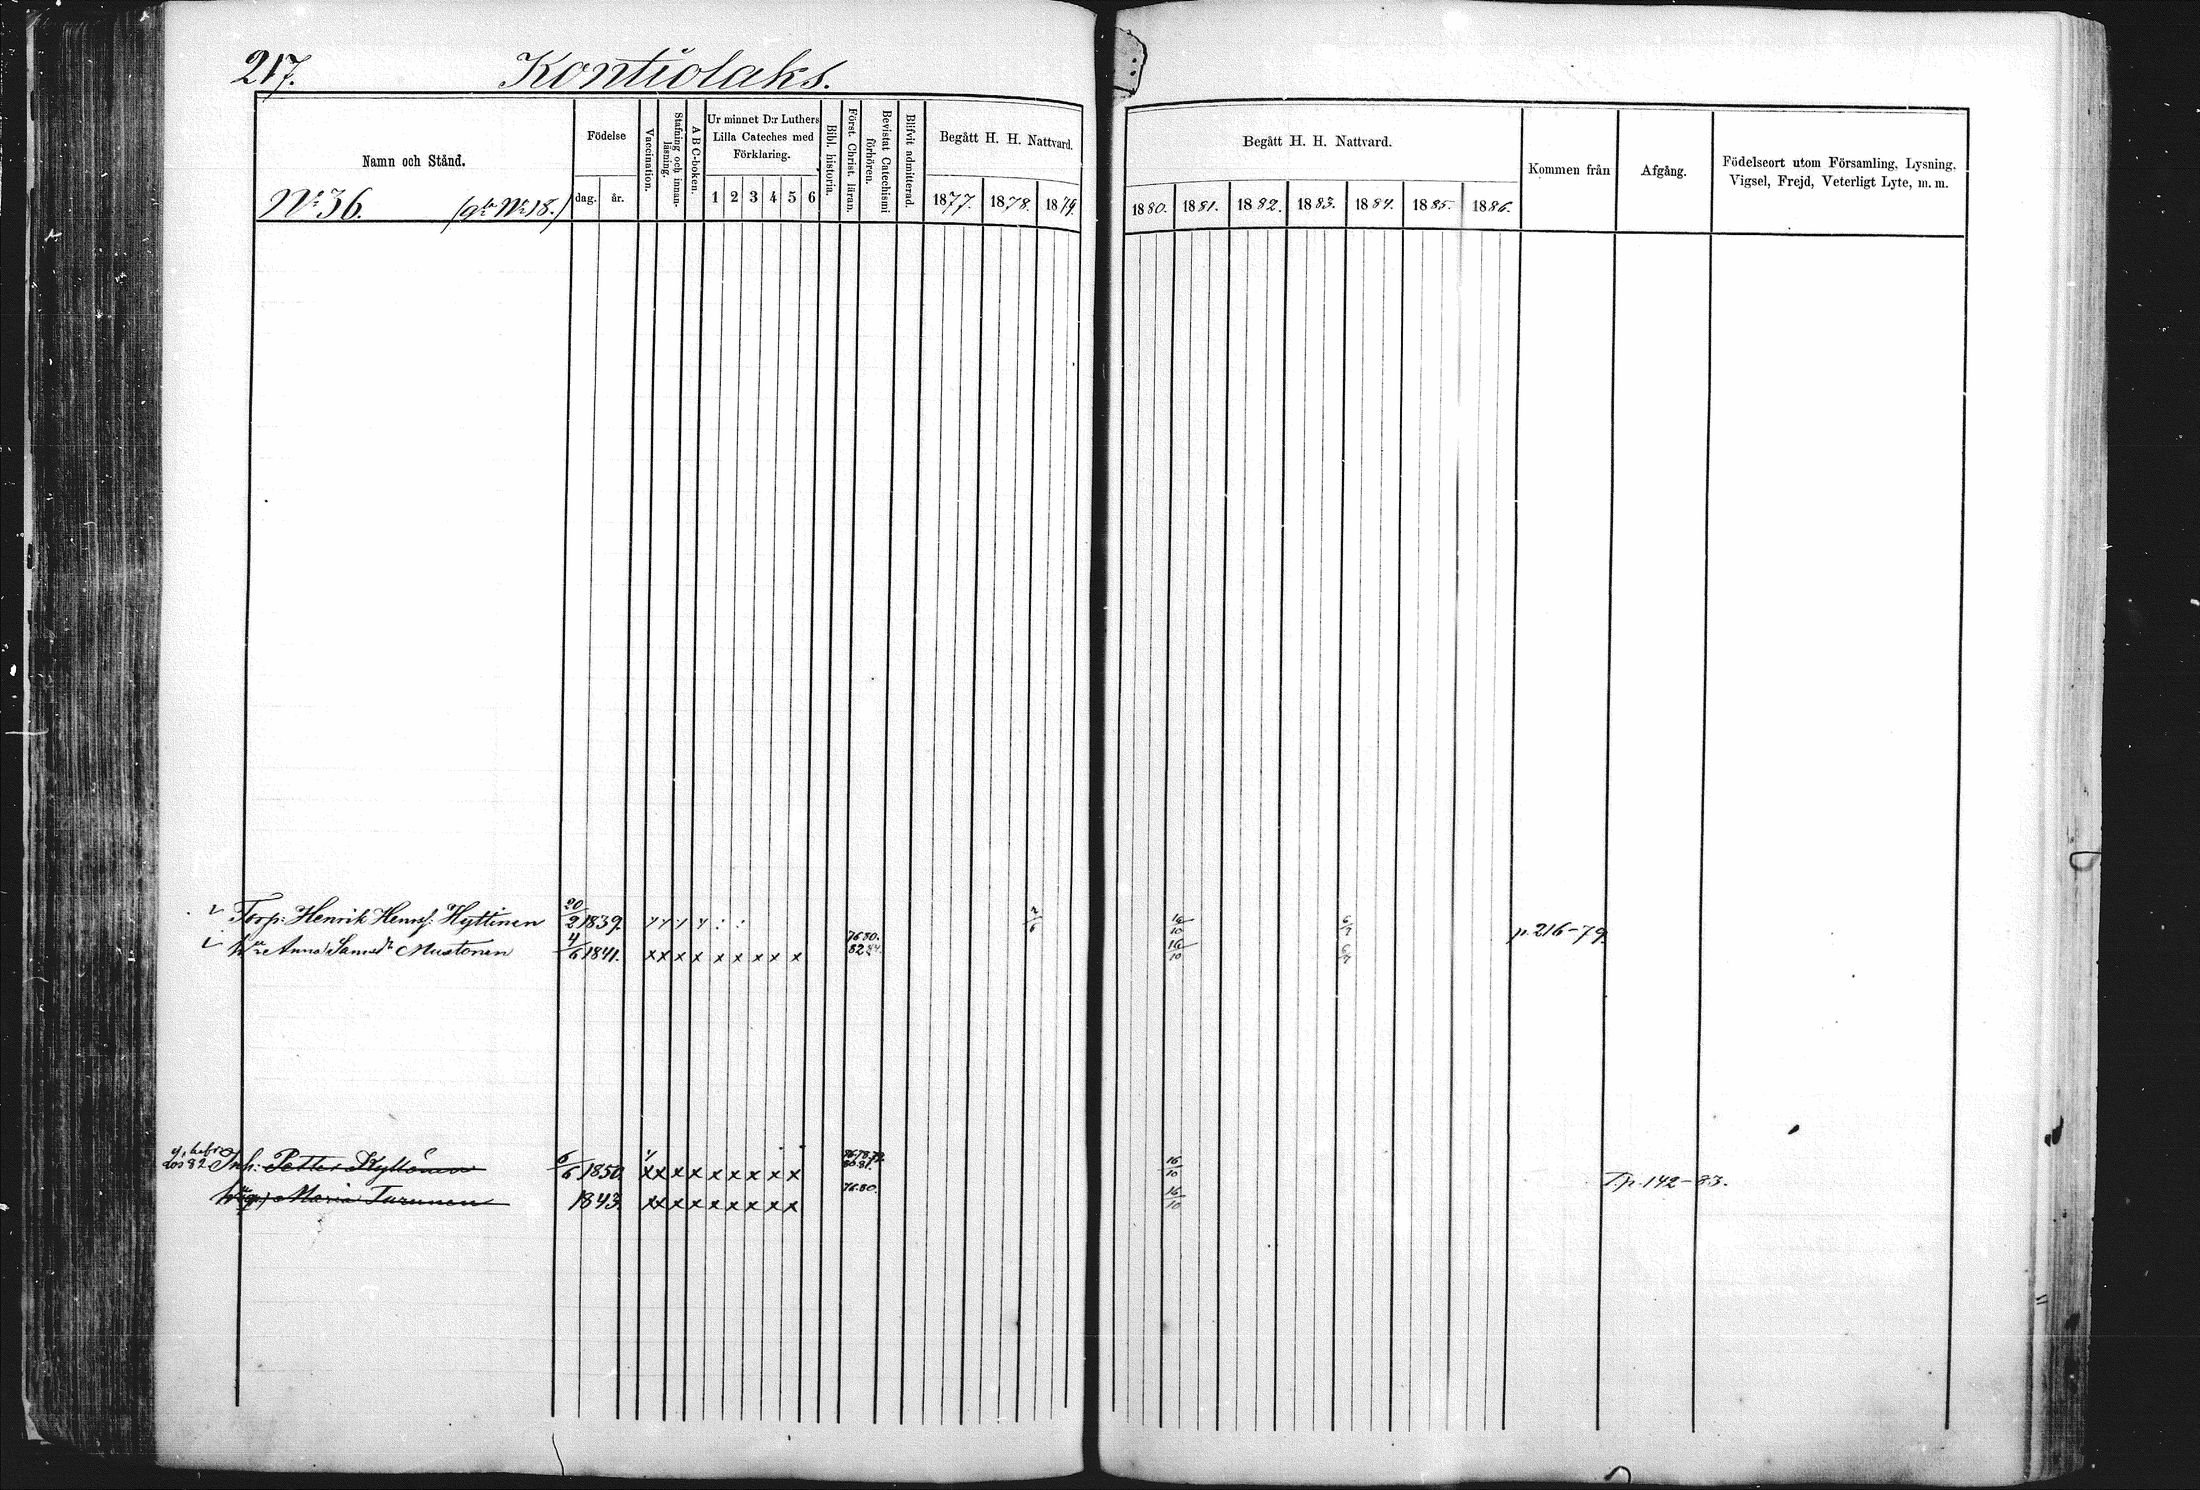 217. Kontiolaks.
Namn och Stånd.
Födelse
dag. år.
Vaccination.
Stafning och innanläsning.
A B C-boken.
Ur minnet D:r Luthers
Lilla Cateches med
Förklaring.
1 2 3 4 5 6
Bibl. historia.
Först. Christ. läran.
Bevistat Catechismi förhören.
Blifvit admitterad.
Begått H. H. Nattvard.
1877. 1878. 1879.
Begått H. H. Nattvard.
1880. 1881. 1882. 1883. 1884. 1885. 1886.
Kommen från
Afgång.
Födelseort utom Församling, Lysning,
Vigsel, Frejd, Veterligt Lyte, m. m.
No 36. Nr 18.)
Torp: Henrik Henrs: Hyttinen 20/2 1839. 2/6 16/10 6/7 p. 216-79.
Anna Samuels: Mustonen 4/6 1841. x x x x x x x x x 76 80. 82 84. 16/10 6/7
Inh: Petter Kyllönen 6/6 1850. x x x x x x x x x 80. 81. 16/10
Maria Turunen 1843. x x x x x x x x x 76. 80. 16/10 p. 142-83.